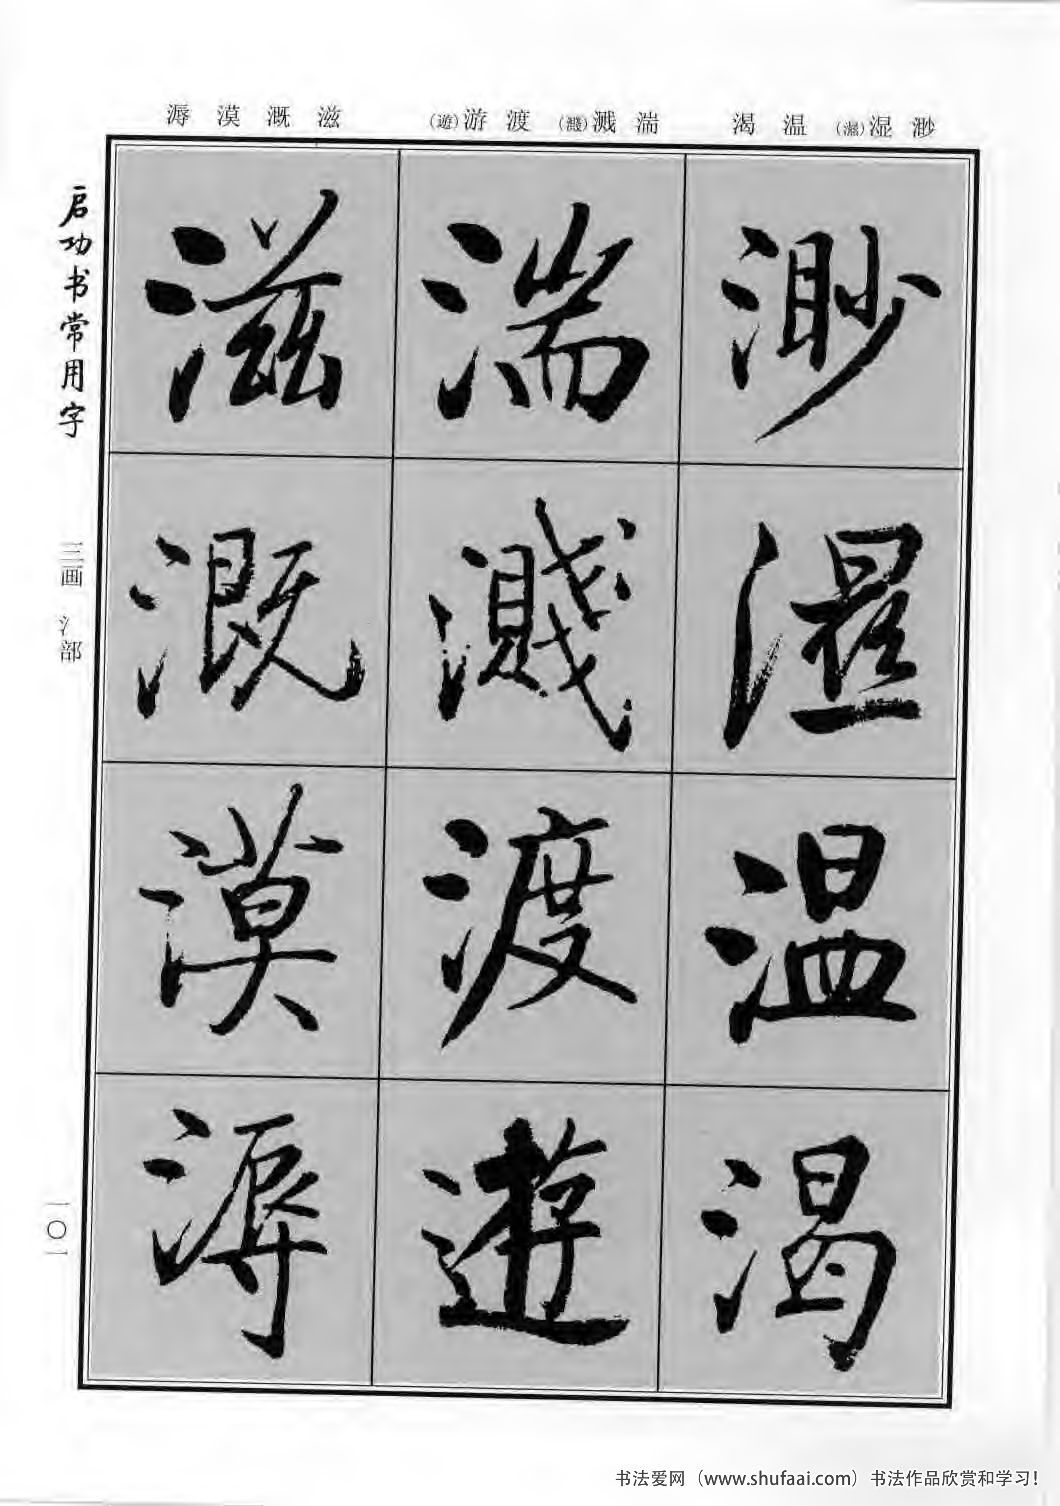 渺 湿(濕) 温 渴
湍 溅(濺) 渡 游(遊)
滋 溉 漠 溽
渺
濕
温
渴
湍
濺
渡
遊
滋
溉
漠
溽
启功书常用字
三画 氵部
一〇一
书法爱网（www.shufaai.com）书法作品欣赏和学习！